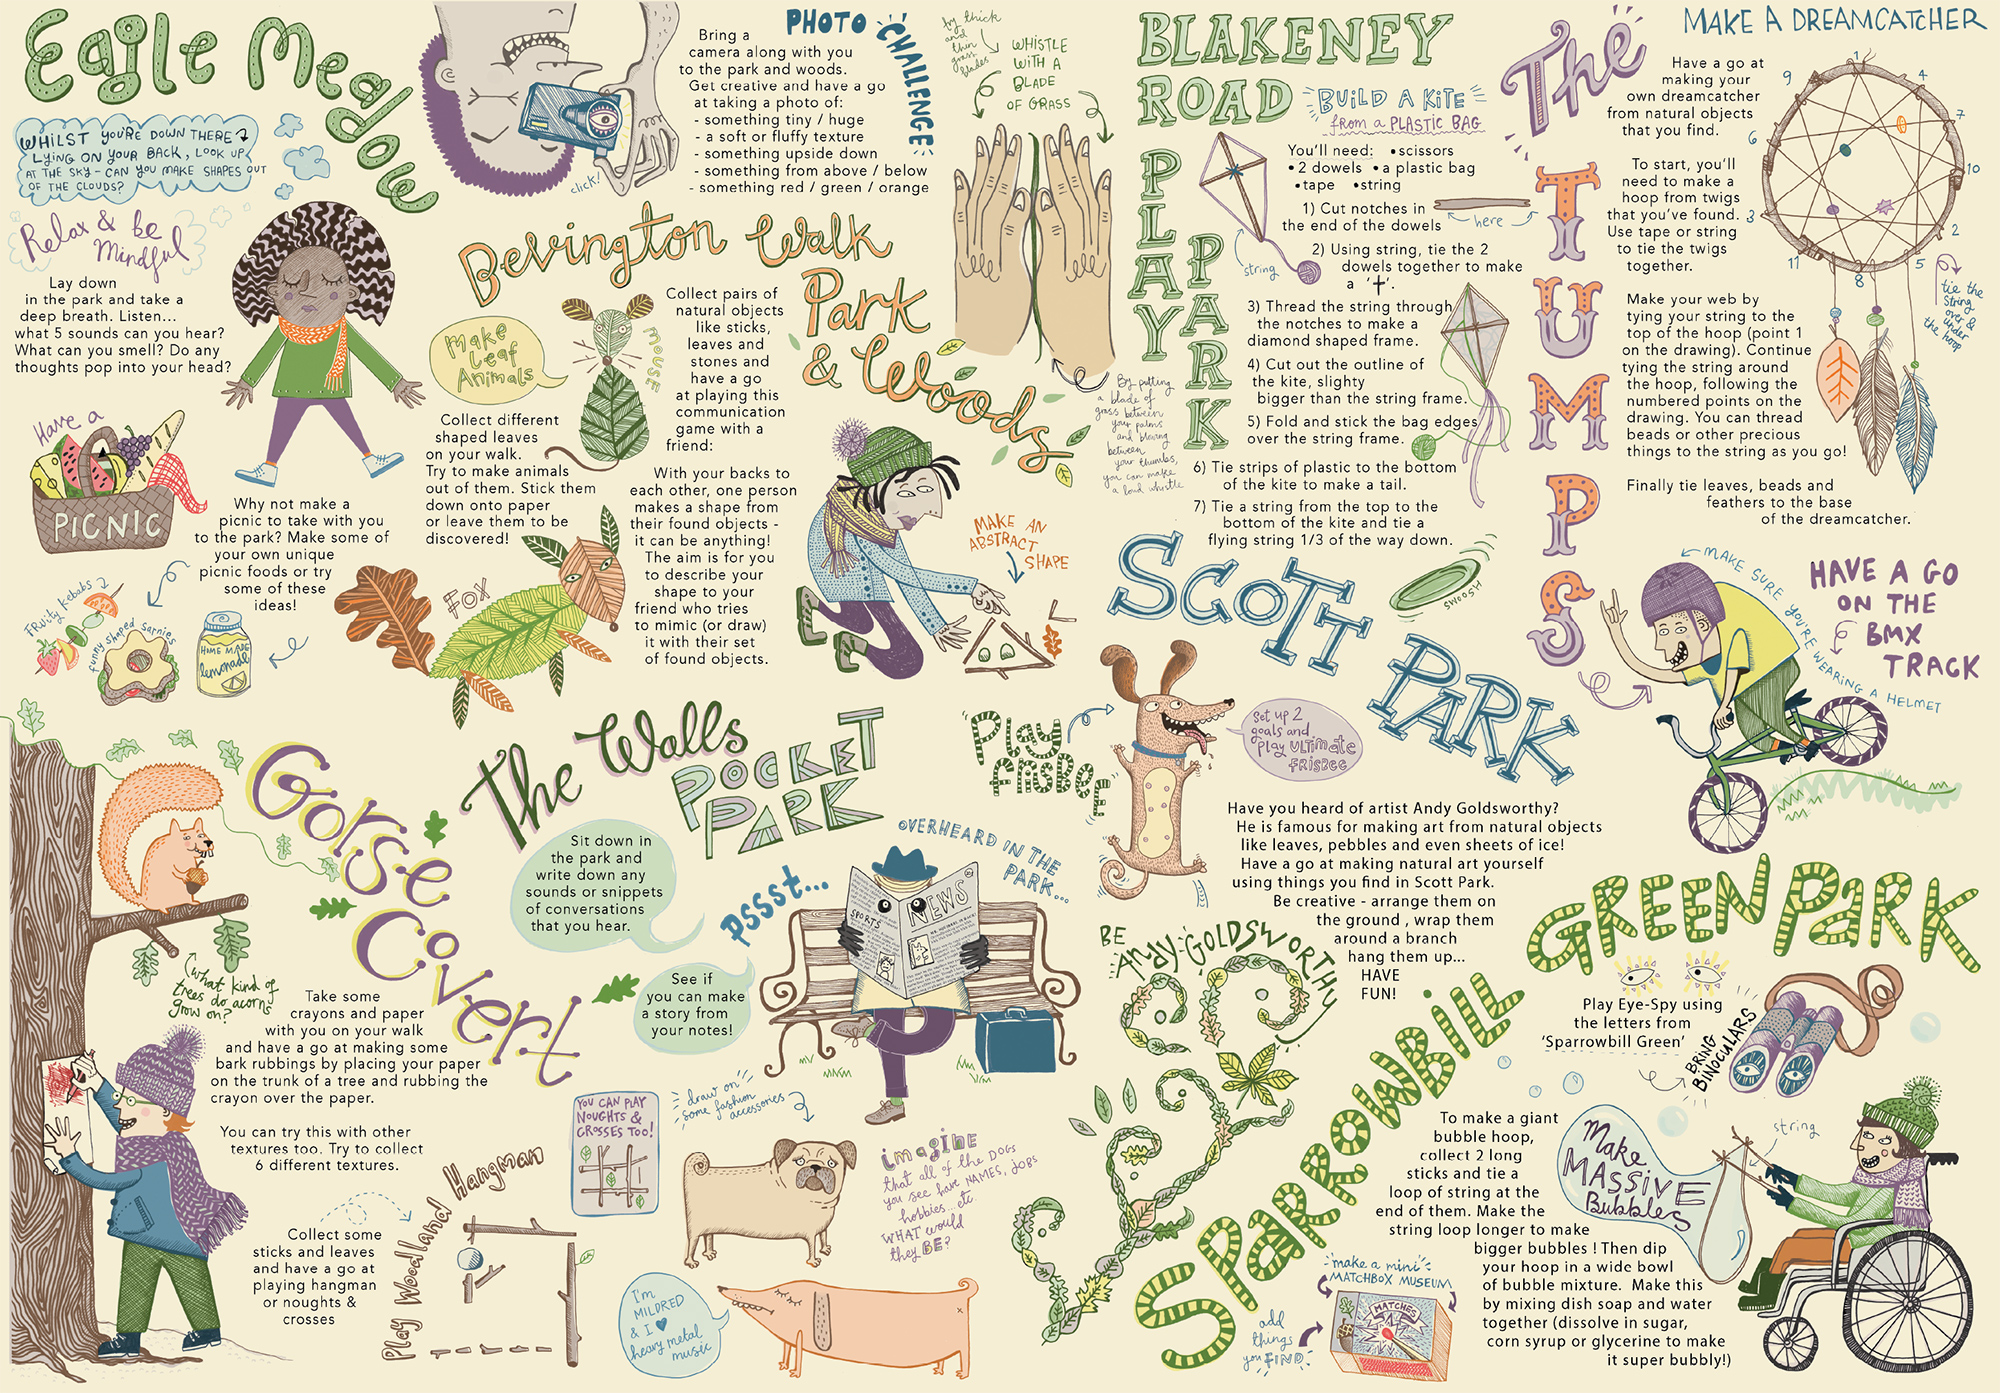 Eagle Meadow
WHILST YOU'RE DOWN THERE
LYING ON YOUR BACK, LOOK UP
AT THE SKY - CAN YOU MAKE SHAPES OUT
OF THE CLOUDS?
Relax & be
Mindful
Lay down
in the park and take a
deep breath. Listen...
what 5 sounds can you hear?
What can you smell? Do any
thoughts pop into your head?
Have a
PICNIC
Why not make a
picnic to take with you
to the park? Make some of
your own unique
picnic foods or try
some of these
ideas!
FRUity KebabS
funny shaped sarnies
HOME MADE
lemonade
click!
PHOTO
CHALLENGE
Bring a
camera along with you
to the park and woods.
Get creative and have a go
at taking a photo of:
- something tiny / huge
- a soft or fluffy texture
- something upside down
- something from above / below
- something red / green / orange
Bevington Walk
Park
& Woods
Make
Leaf
Animals
MOUSE
Collect different
shaped leaves
on your walk.
Try to make animals
out of them. Stick them
down onto paper
or leave them to be
discovered!
FOX
Collect pairs of
natural objects
like sticks,
leaves and
stones and
have a go
at playing this
communication
game with a
friend:
With your backs to
each other, one person
makes a shape from
their found objects -
it can be anything!
The aim is for you
to describe your
shape to your
friend who tries
to mimic (or draw)
it with their set
of found objects.
MAKE AN
ABSTRACT
SHAPE
try thick
and
thin
grass
blades
WHISTLE
WITH A
BLADE
OF GRASS
By putting
a blade of
grass between
your palms
and blowing
between
your thumbs,
you can make
a loud whistle
BLAKENEY
ROAD
PLAY
PARK
BUILD A KITE
from a PLASTIC BAG
You'll need: •scissors
•2 dowels •a plastic bag
•tape •string
1) Cut notches in
the end of the dowels
here
string
2) Using string, tie the 2
dowels together to make
a '†'.
3) Thread the string through
the notches to make a
diamond shaped frame.
4) Cut out the outline of
the kite, slighty
bigger than the string frame.
5) Fold and stick the bag edges
over the string frame.
6) Tie strips of plastic to the bottom
of the kite to make a tail.
7) Tie a string from the top to the
bottom of the kite and tie a
flying string 1/3 of the way down.
The
TUMPS
MAKE A DREAMCATCHER
Have a go at
making your
own dreamcatcher
from natural objects
that you find.
To start, you'll
need to make a
hoop from twigs
that you've found.
Use tape or string
to tie the twigs
together.
Make your web by
tying your string to the
top of the hoop (point 1
on the drawing). Continue
tying the string around
the hoop, following the
numbered points on the
drawing. You can thread
beads or other precious
things to the string as you go!
Finally tie leaves, beads and
feathers to the base
of the dreamcatcher.
1
4
7
10
2
5
8
11
3
6
9
tie the
string
over &
under
the hoop
MAKE SURE YOU'RE WEARING A HELMET
HAVE A GO
ON THE
BMX
TRACK
SCOTT PARK
SWOOSH
Play
frisbee
Set up 2
goals and
play ULTimate
FRISBEE
Have you heard of artist Andy Goldsworthy?
He is famous for making art from natural objects
like leaves, pebbles and even sheets of ice!
Have a go at making natural art yourself
using things you find in Scott Park.
Be creative - arrange them on
the ground , wrap them
around a branch
hang them up...
HAVE
FUN!
BE
ANDY GOLDSWORTHY
Gorse
Covert
What kind of
trees do acorns
grow on?
Take some
crayons and paper
with you on your walk
and have a go at making some
bark rubbings by placing your paper
on the trunk of a tree and rubbing the
crayon over the paper.
You can try this with other
textures too. Try to collect
6 different textures.
Collect some
sticks and leaves
and have a go at
playing hangman
or noughts &
crosses
Play Woodland Hangman
YOU CAN PLAY
NOUGHTS &
CROSSES TOO!
The Walls
POCKET
PARK
Sit down in
the park and
write down any
sounds or snippets
of conversations
that you hear.
See if
you can make
a story from
your notes!
PSSST...
OVERHEARD IN THE
PARK...
SPORTS
NEWS
draw on
some fashion
accessories
imagine
that all of the DOGS
you see have NAMES, JOBS
hobbies... etc
WHAT would
they BE?
I'm
MILDRED
& I ♥
heavy metal
music
SPARROWBILL
GREEN PARK
Play Eye-Spy using
the letters from
'Sparrowbill Green'
BRING
BINOCULARS
To make a giant
bubble hoop,
collect 2 long
sticks and tie a
loop of string at the
end of them. Make the
string loop longer to make
bigger bubbles ! Then dip
your hoop in a wide bowl
of bubble mixture. Make this
by mixing dish soap and water
together (dissolve in sugar,
corn syrup or glycerine to make
it super bubbly!)
Make
MASSIVE
Bubbles
string
make a mini
MATCHBOX MUSEUM
MATCHES
add
things
you FIND.